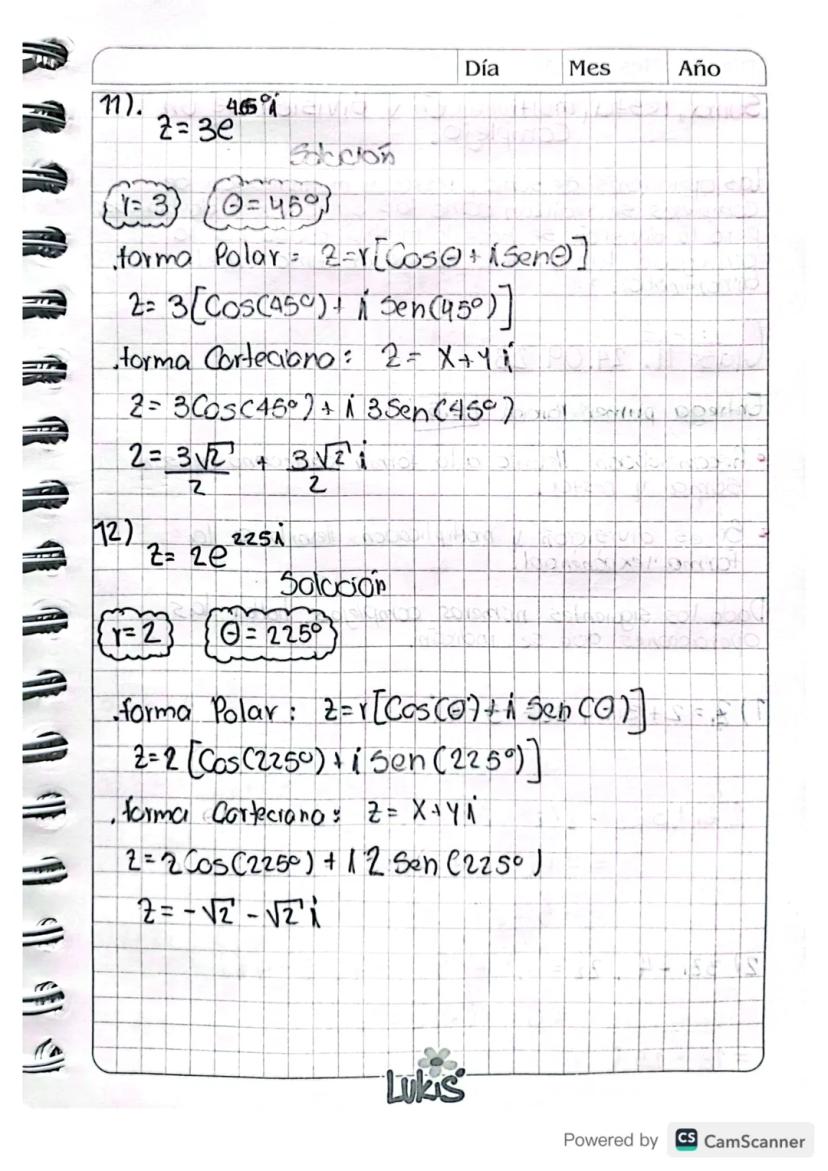 Día Mes Año
11). z = 3e^45°i
Solución
r = 3 θ = 45°
.forma Polar = z = r[Cosθ + i Senθ]
z = 3[Cos(45°) + i Sen(45°)]
.forma Carteciana: z = x + yi
z = 3Cos(45°) + i 3Sen(45°)
z = 3√2/2 + 3√2/2 i
12) z = 2e^225i
Solución
r = 2 θ = 225°
.forma Polar : z = r[Cos(θ) + i Sen(θ)]
z = 2 [Cos(225°) + i Sen(225°)]
.forma Carteciana: z = x + yi
z = 2Cos(225°) + i 2 Sen(225°)
z = -√2 - √2 i
Lukas
Powered by CS CamScanner